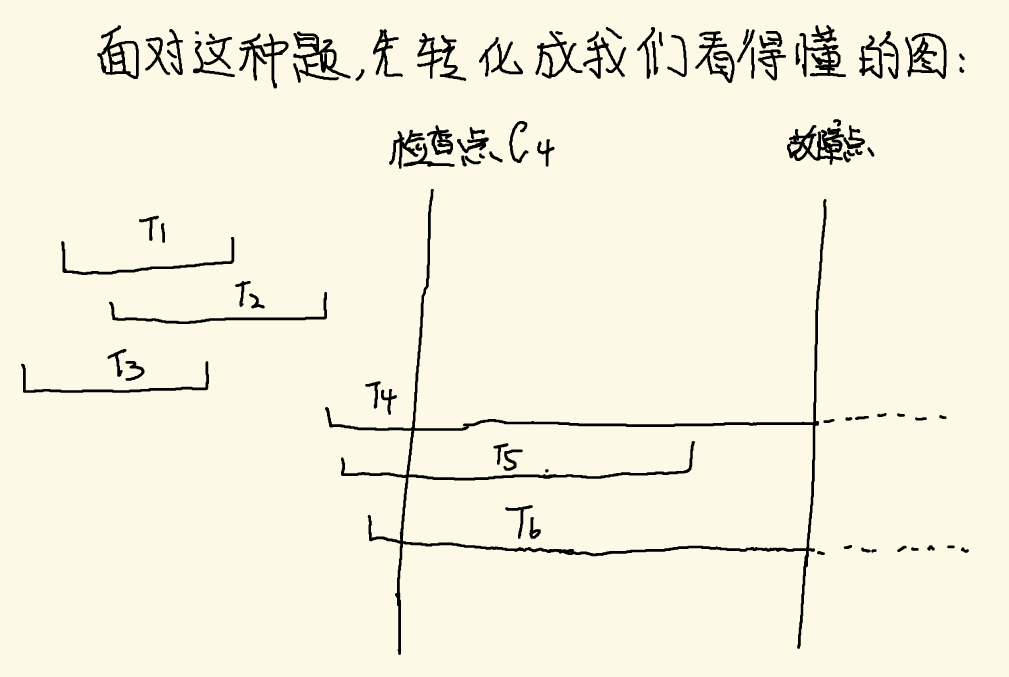 面对这种题,先转化成我们看得懂的图:
检查点C4 故障点
T1
T2
T3
T4
T5
T6